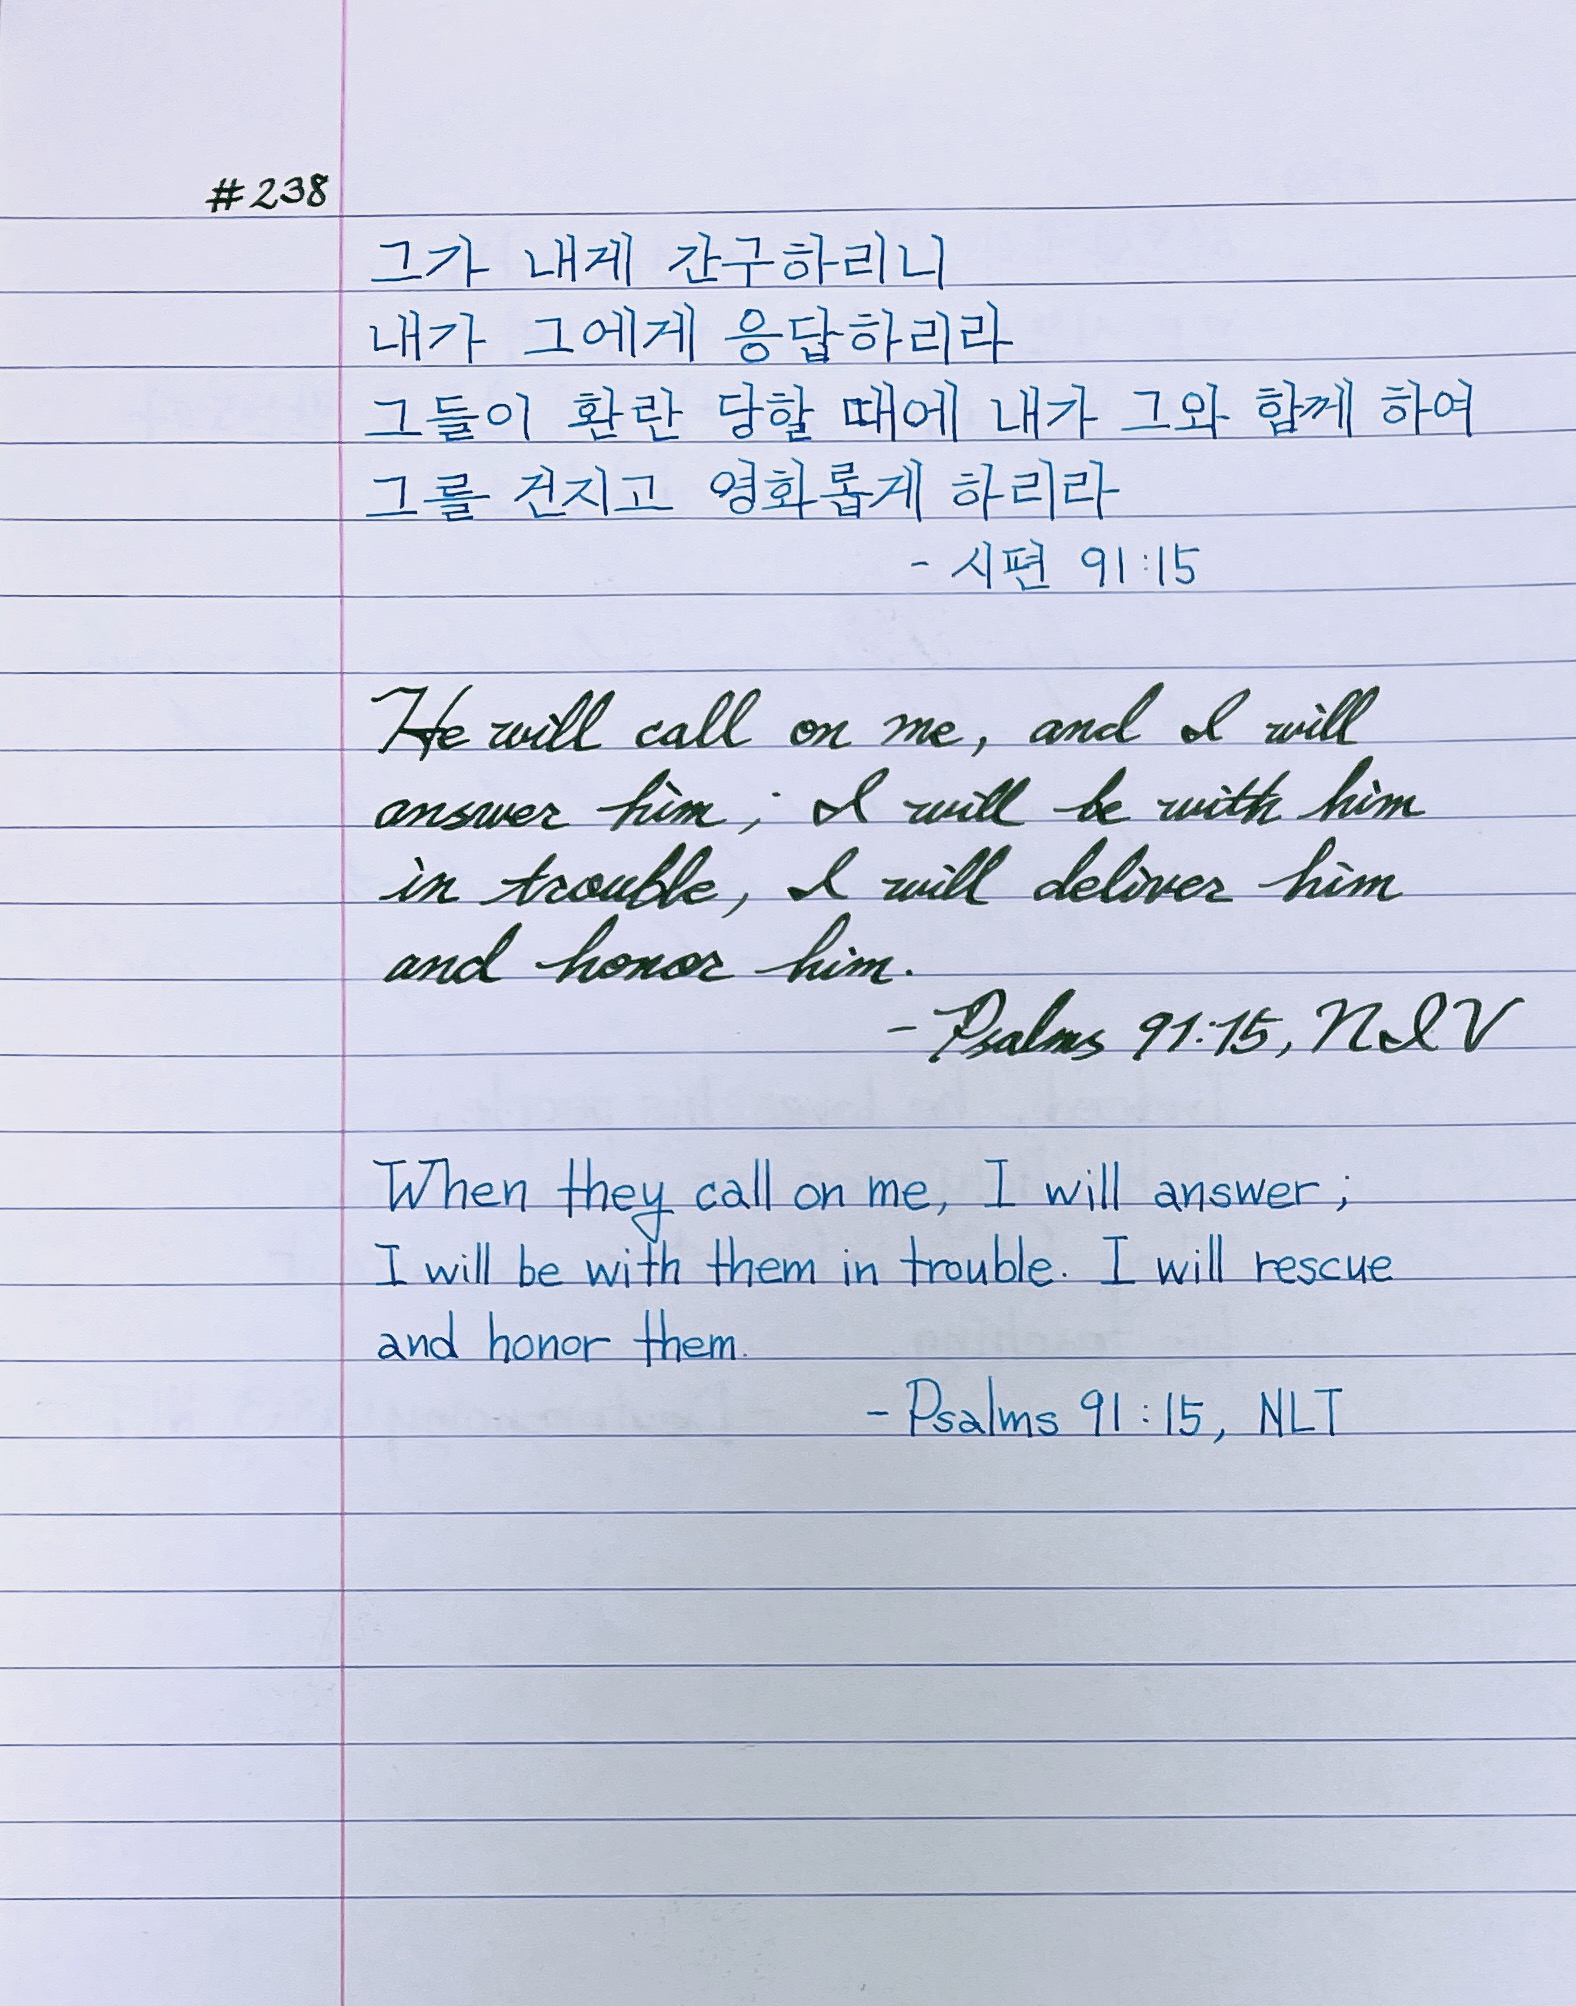 #238
그가 내게 간구하리니
내가 그에게 응답하리라
그들이 환란 당할 때에 내가 그와 함께 하여
그를 건지고 영화롭게 하리라
- 시편 91:15
He will call on me, and I will
answer him; I will be with him
in trouble, I will deliver him
and honor him.
- Psalms 91:15, NIV
When they call on me, I will answer;
I will be with them in trouble. I will rescue
and honor them.
- Psalms 91:15, NLT